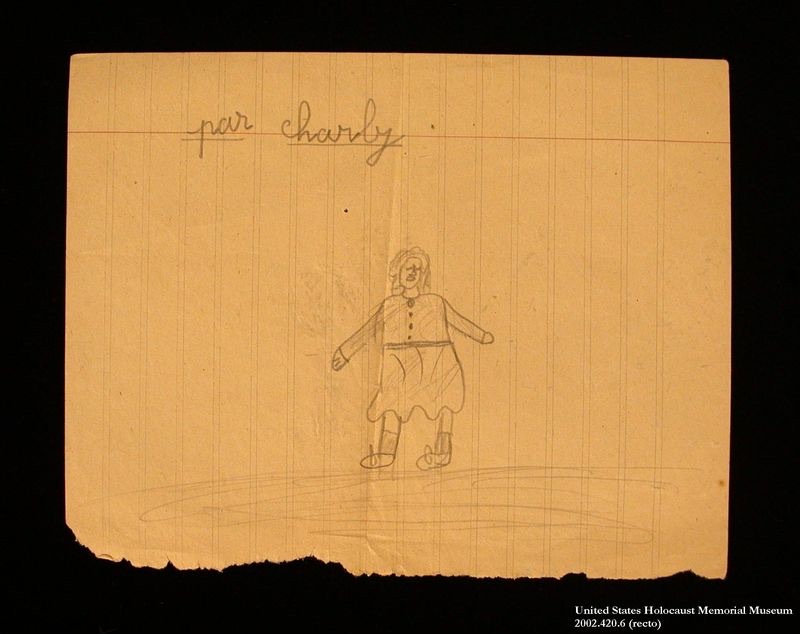 par charly
United States Holocaust Memorial Museum
2002.420.6 (recto)